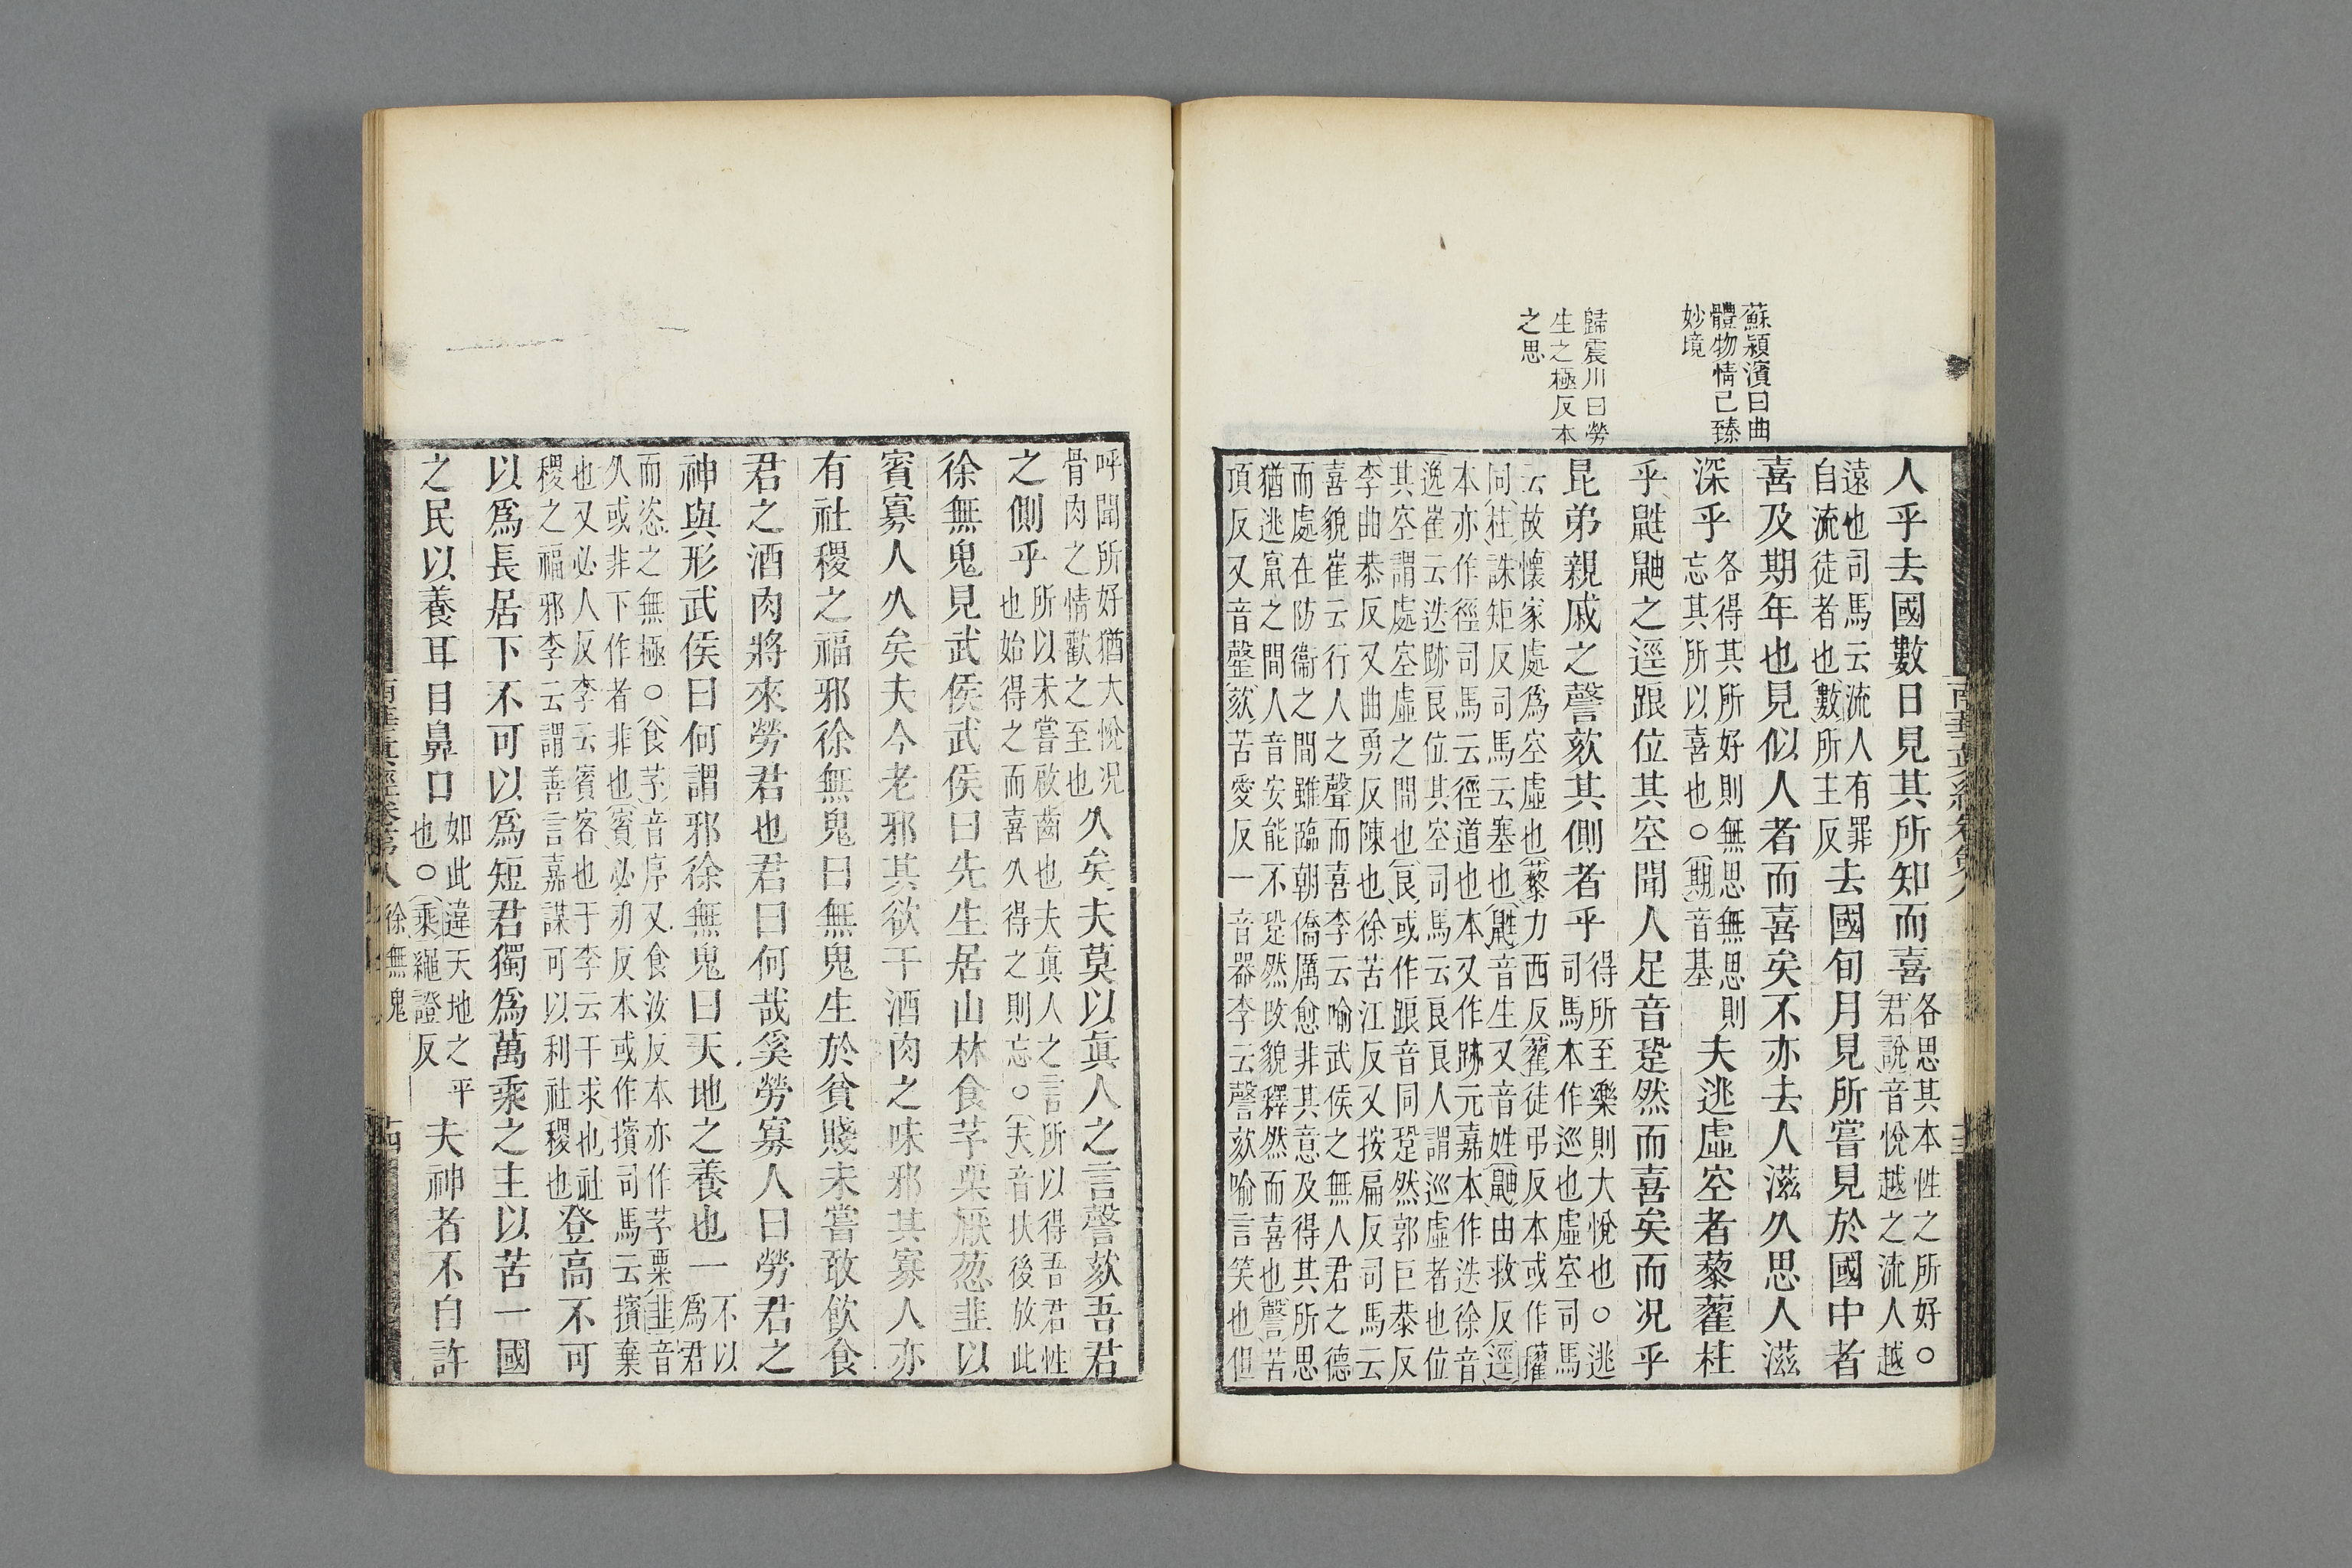 蘇潁濱曰曲
體物情已臻
妙境
歸震川曰勞
生之極反本
之思
人乎去國數日見其所知而喜各思其本性之所好○
君說音悅越之流人越
遠也司馬云流人有罪
自流徒者也數所主反去國旬月見所嘗見於國中者
喜及期年也見似人者而喜矣不亦去人滋久思人滋
深乎各得其所好則無思無思則
忘其所以喜也○期音基夫逃虛空者藜藋柱
乎鼪鼬之逕踉位其空聞人足音跫然而喜矣而況乎
昆弟親戚之謦欬其側者乎得所至樂則大悅也○逃
司馬本作巡也虛空司馬
云故懷家處為空虛也藜力西反藋徒弔反本或作㩴
同柱誅矩反司馬云塞也鼪音生又音姓鼬由救反逕
本亦作徑司馬云徑道也本又作跡元嘉本作迭徐音
逸崔云迭跡良位其空司馬云良良人謂巡虛者也位
其空謂處空虛之間也良或作踉音同跫然郭巨恭反
李曲恭反又曲勇反陳也徐苦江反又按扁反司馬云
喜貌崔云行人之聲而喜李云喻武侯之無人君之德
而處在防衞之間雖臨朝僑厲愈非其意及得其所思
猶逃竄之間人音安能不跫然改貌釋然而喜也謦苦
頂反又音罄欬苦愛反一音器李云謦欬喻言笑也但
呼聞所好猶大悅況
骨肉之情歡之至也久矣夫莫以眞人之言謦欬吾君
之側乎所以未嘗啟齒也夫眞人之言所以得吾君性
也始得之而喜久得之則忘○夫音扶後放此
徐無鬼見武侯武侯曰先生居山林食芧栗厭葱韭以
賓寡人久矣夫今老邪其欲干酒肉之味邪其寡人亦
有社稷之福邪徐無鬼曰無鬼生於貧賤未嘗敢飲食
君之酒肉將來勞君也君曰何哉奚勞寡人曰勞君之
神與形武侯曰何謂邪徐無鬼曰天地之養也一不以
為君
而恣之無極○食芧音序又食汝反本亦作芧栗韭音
久或非下作者非也賓必刃反本或作擯司馬云擯棄
也又必人反李云賓客也于李云干求也社
稷之福邪李云謂善言嘉謀可以利社稷也登高不可
以爲長居下不可以爲短君獨爲萬乘之主以苦一國
之民以養耳目鼻口如此違天地之平
也○乘繩證反夫神者不自許
南華眞經卷第八
徐無鬼